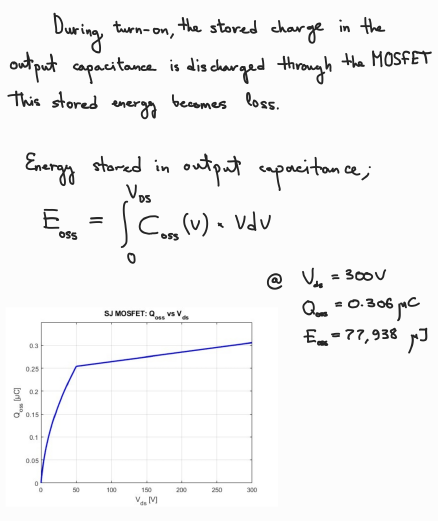 During turn-on, the stored charge in the
output capacitance is discharged through the MOSFET
This stored energy becomes loss.
Energy stored in output capacitance;
E_oss = ∫_0^V_DS C_oss(v) · V dV
@ V_ds = 300V
Q_oss = 0.306 μC
E_oss = 77,938 μJ
SJ MOSFET: Q_oss vs V_ds
Q_oss [μC]
0.3
0.25
0.2
0.15
0.1
0.05
0
0 50 100 150 200 250 300
V_ds [V]